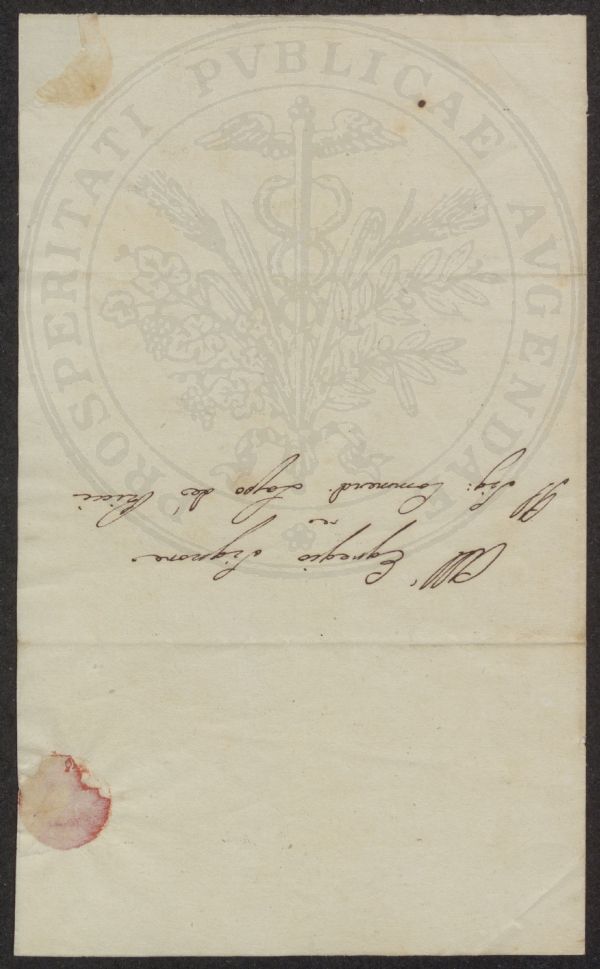 PROSPERITATI PVBLICAE AVGENDAE
All' Egregio Signore
Il Sig: Commend.re Lapo de' Ricci